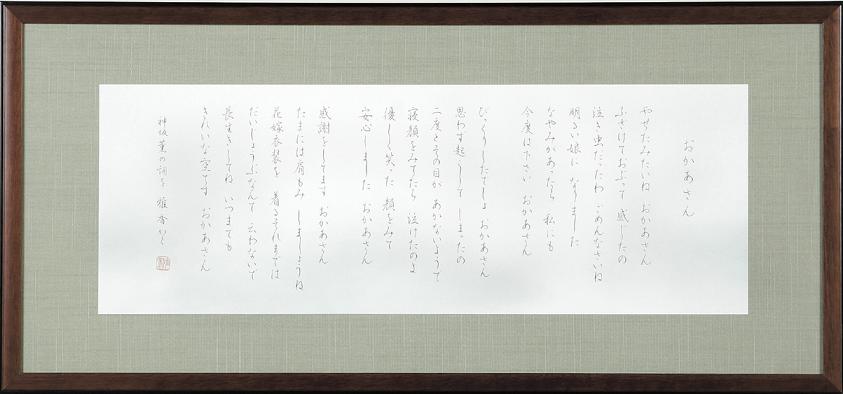 おかあさん
やせたみたいね おかあさん
ふざけておぶって 感じたの
泣き虫だったわ ごめんなさいね
明るい娘に なりました
なやみがあったら 私にも
今度は下さい おかあさん
びっくりしたでしょ おかあさん
思わず起して しまったの
二度とその目が あかないようで
寝顔をみてたら 泣けたのよ
優しく笑った 顔をみて
安心しました おかあさん
感謝をしてます おかあさん
たまには肩もみ しましょうね
花嫁衣裳を 着るそれまでは
だいじょうぶなんて 云わないで
長生きしてね いつまでも
きれいな空です おかあさん
神坂薫の詞を 雅香かく